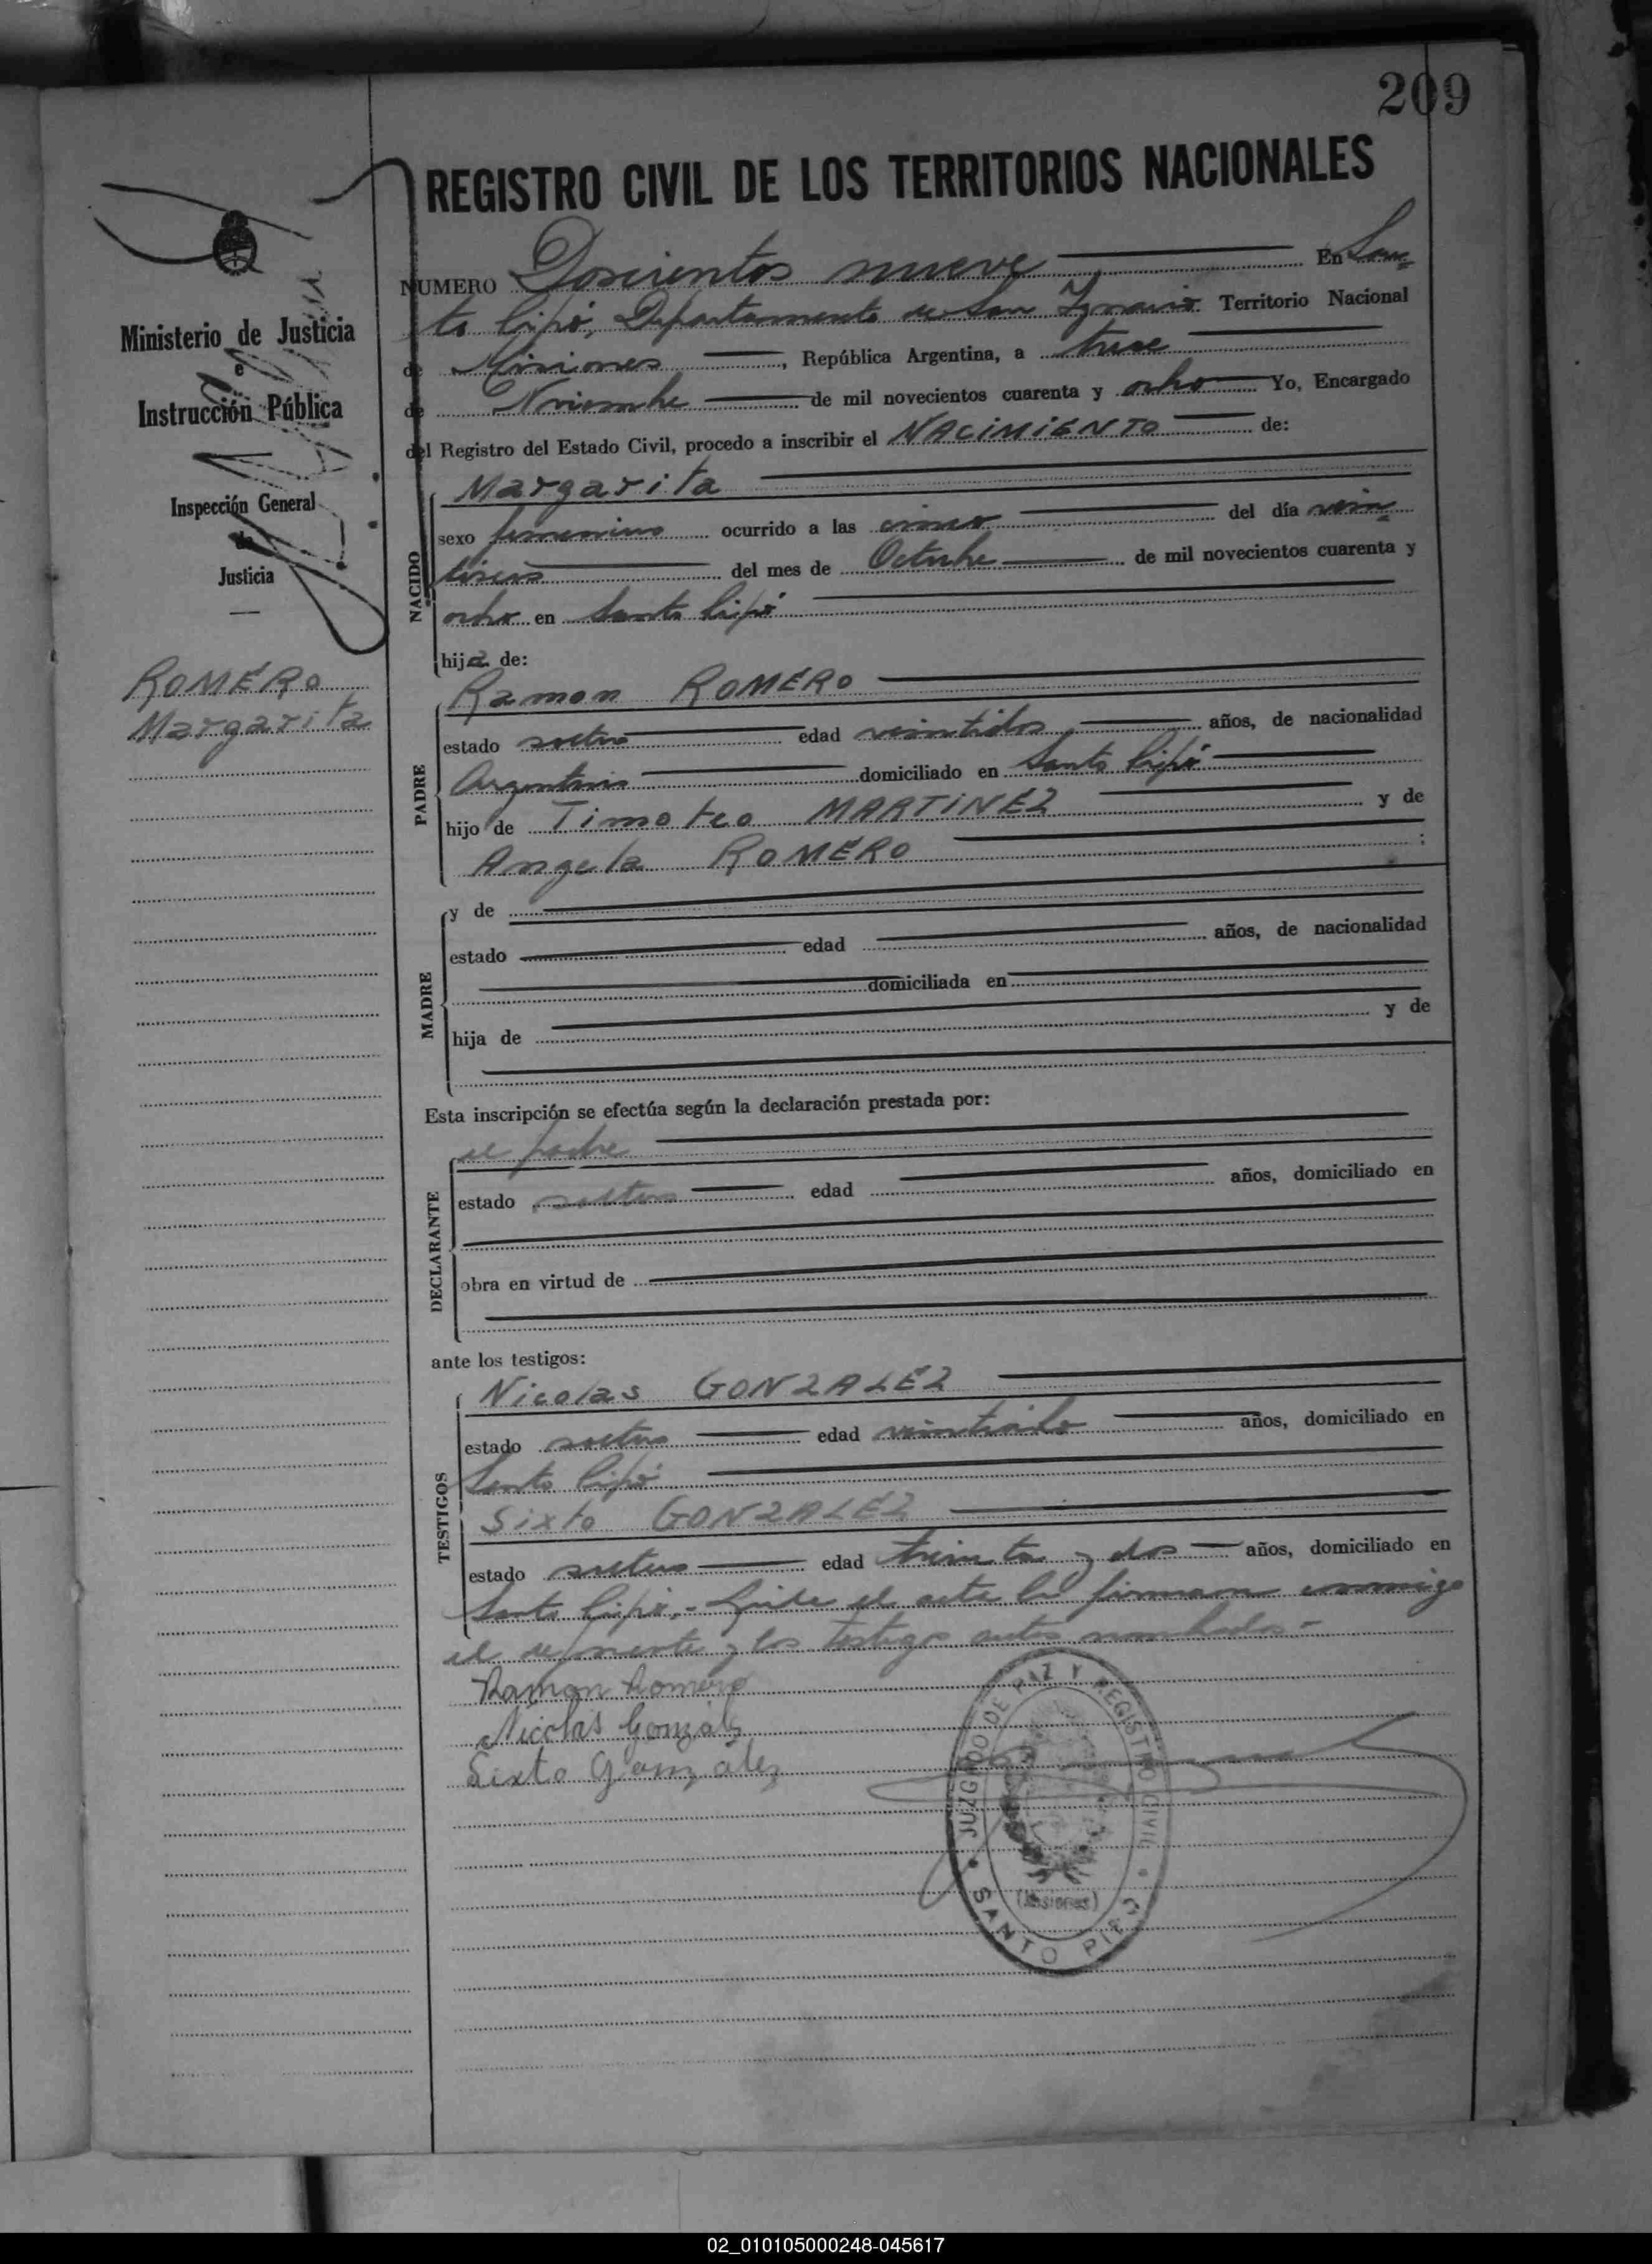 209
REGISTRO CIVIL DE LOS TERRITORIOS NACIONALES
Ministerio de Justicia
e
Instrucción Pública
Inspección General
de
Justicia
ROMERO
Margarita
NUMERO Doscientos nueve En San=
to Pipó, Departamento de San Ignacio Territorio Nacional
de Misiones, República Argentina, a trece
de Noviembre de mil novecientos cuarenta y ocho Yo, Encargado
del Registro del Estado Civil, procedo a inscribir el NACIMIENTO de:
NACIDO
Margarita
sexo femenino ocurrido a las cinco del día vein=
tiseis del mes de Octubre de mil novecientos cuarenta y
ocho en Santo Pipó
hija de:
PADRE
Ramon ROMERO
estado soltero edad veintidos años, de nacionalidad
Argentino domiciliado en Santo Pipó
hijo de Timoteo MARTINEZ y de
Angela ROMERO ;
MADRE
y de
estado edad años, de nacionalidad
domiciliada en
hija de y de
Esta inscripción se efectúa según la declaración prestada por:
DECLARANTE
el padre
estado soltero edad años, domiciliado en
obra en virtud de
ante los testigos:
TESTIGOS
Nicolas GONZALEZ
estado soltero edad veintiocho años, domiciliado en
Santo Pipó
Sixto GONZALEZ
estado soltero edad treinta y dos años, domiciliado en
Santo Pipó.- Leida el acta la firman conmigo
el exponente y los testigos antes nombrados.-
Ramon Romero
Nicolás González
Sixto González
JUZGADO DE PAZ Y REGISTRO CIVIL
(Misiones)
SANTO PIPÓ
02_010105000248-045617